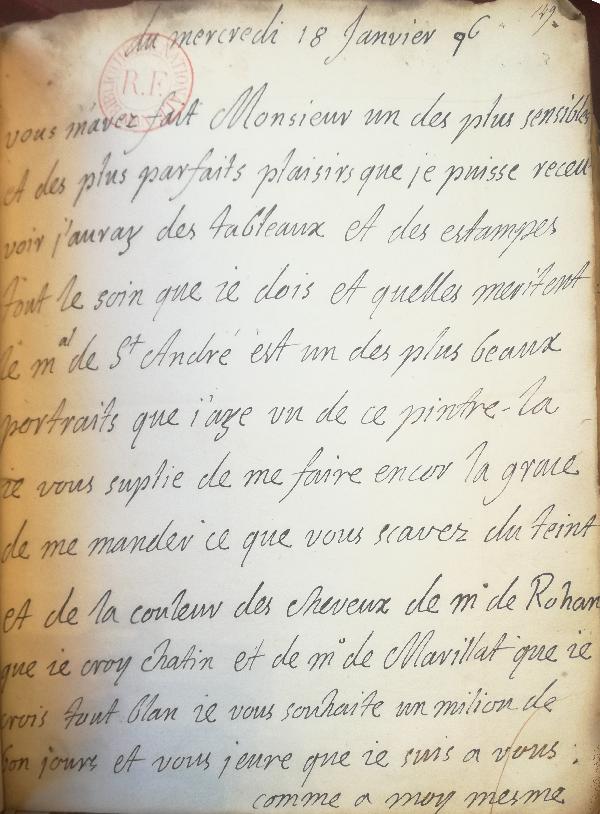 149.
du mercredi 18 Janvier 96
BIBLIOTHEQUE NATIONALE
R.F.
vous m'avez fait Monsieur un des plus sensibles
et des plus parfaits plaisirs que je puisse receu-
voir j'auray des tableaux et des estampes
tout le soin que ie dois et quelles meritent
le mal de St André est un des plus beaux
portraits que i'aye vu de ce pintre-la
ie vous suplie de me faire encor la grace
de me mander ce que vous scavez du teint
et de la couleur des cheveux de mr de Rohan
que ie croy chatin et de mr de Marillat que ie
crois tout blan ie vous souhaite un milion de
bon jours et vous jeure que ie suis a vous
comme a moy mesme